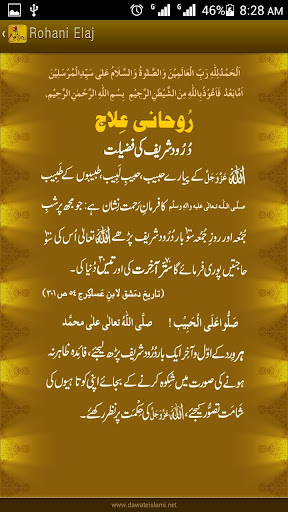 46% 8:28 AM
Rohani Elaj
اَلْحَمْدُلِلّٰهِ رَبِّ الْعٰلَمِيْنَ وَالصَّلٰوةُ وَالسَّلَامُ عَلٰى سَيِّدِالْمُرْسَلِيْنَ
اَمَّابَعْدُ فَاَعُوْذُبِاللّٰهِ مِنَ الشَّيْطٰنِ الرَّجِيْمِ بِسْمِ اللّٰهِ الرَّحْمٰنِ الرَّحِيْمِ
رُوحانی عِلاج
دُرُود شریف کی فضیلت
اللہ عَزَّوَجَلَّ کے پیارے حبیب، حبیبِ لَبِیب، طبیبوں کے طَبِیب
صلَّی اللہ تعالٰی علیہ واٰلہٖ وسلَّم کا فرمانِ رَحمت نشان ہے: جو مجھ پر شبِ
جُمُعہ اور روزِ جُمُعہ سو بار دُرُود شریف پڑھے اللہ تعالٰی اُس کی سو
حاجتیں پوری فرمائے گا ستّر آخِرت کی اور تیس دنیا کی
(تاریخ دمشق لابن عساکِر ج ٥٤ ص ٣٠١)
صَلُّوا عَلَی الْحَبِیْب! صلَّی اللہُ تعالٰی علٰی محمَّد
ہر وِرد کے اوّل و آخِر ایک بار دُرُود شریف پڑھ لیجئے، فائدہ ظاہر نہ
ہونے کی صورت میں شکوہ کرنے کے بجائے اپنی کوتاہیوں کی
شامت تصوُّر کیجئے، اللہ عَزَّوَجَلَّ کی حِکمت پر نظر رکھئے۔
www.dawateislami.net